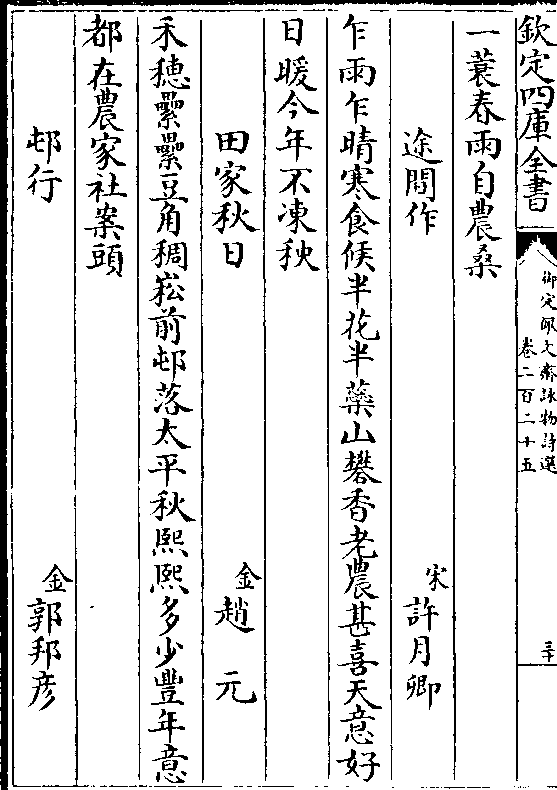 欽定四庫全書
御定佩文齋詠物詩選
卷二百二十五
三十
一蓑春雨自農桑
途閒作
宋
許月卿
乍雨乍晴寒食候半花半蘂山礬香老農甚喜天意好
日暖今年不凍秧
田家秋日
金
趙元
禾穗纍纍豆角稠崧前邨落太平秋熙熙多少豐年意
都在農家社案頭
邨行
金
郭邦彦